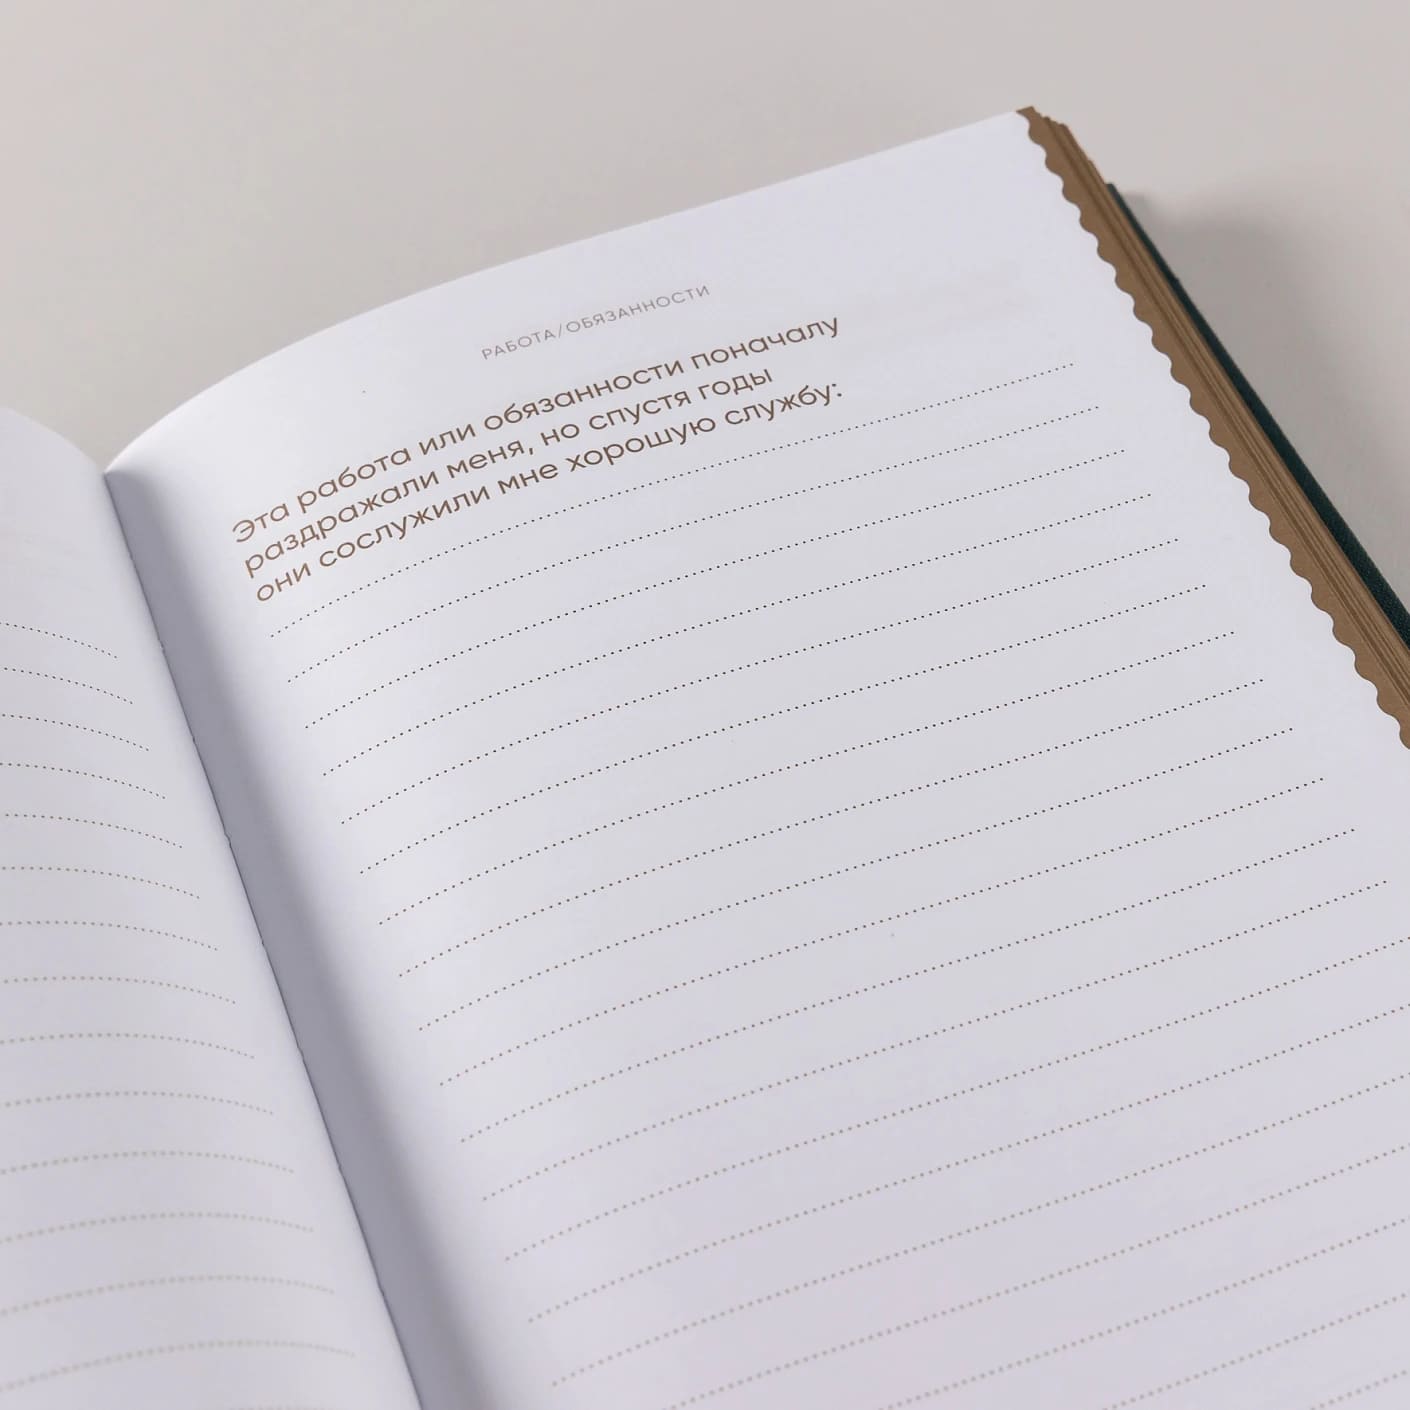 РАБОТА/ОБЯЗАННОСТИ
Эта работа или обязанности поначалу
раздражали меня, но спустя годы
они сослужили мне хорошую службу: